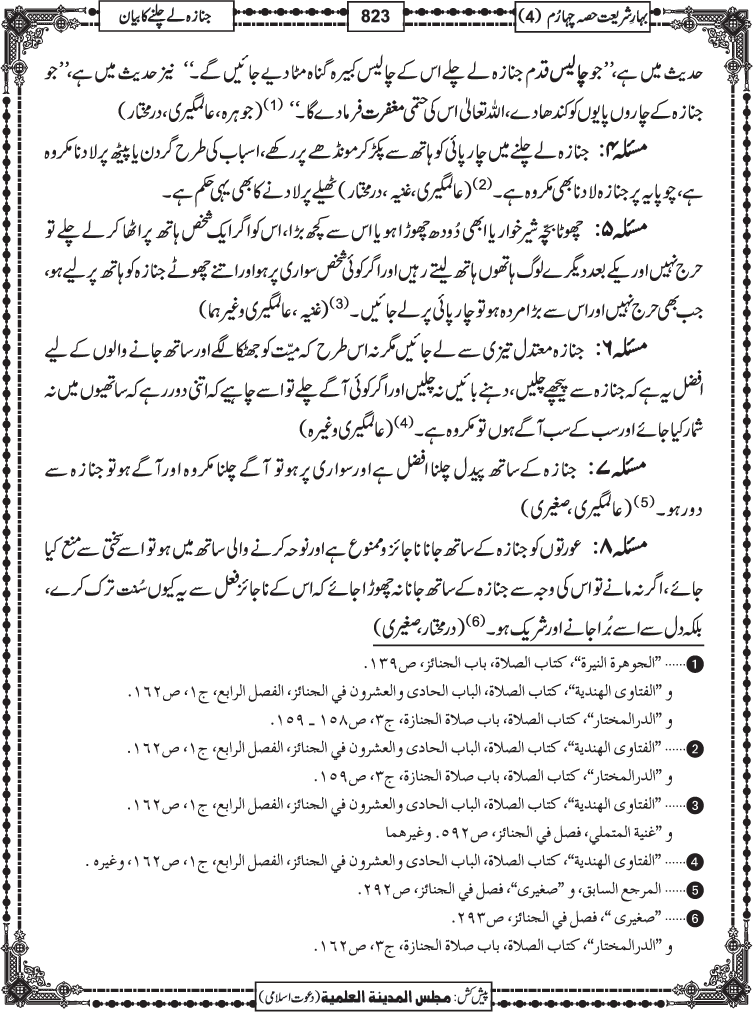 بہارِ شریعت حصہ چہارم (4)
823
جنازہ لے چلنے کا بیان
حدیث میں ہے، ’’جو چالیس قدم جنازہ لے چلے اس کے چالیس کبیرہ گناہ مٹا دیے جائیں گے۔‘‘ نیز حدیث میں ہے، ’’جو
جنازہ کے چاروں پایوں کو کندھا دے، اللہ تعالیٰ اس کی حتمی مغفرت فرما دے گا۔‘‘ (1) (جوہرہ، عالمگیری، درمختار)
مسئلہ ۴: جنازہ لے چلنے میں چارپائی کو ہاتھ سے پکڑ کر مونڈھے پر رکھے، اسباب کی طرح گردن یا پیٹھ پر لادنا مکروہ
ہے، چوپایہ پر جنازہ لادنا بھی مکروہ ہے۔(2) (عالمگیری، غنیہ، درمختار) ٹھیلے پر لادنے کا بھی یہی حکم ہے۔
مسئلہ ۵: چھوٹا بچہ شیر خوار یا ابھی دُودھ چھوڑا ہو یا اس سے کچھ بڑا، اس کو اگر ایک شخص ہاتھ پر اٹھا کر لے چلے تو
حرج نہیں اور یکے بعد دیگرے لوگ ہاتھوں ہاتھ لیتے رہیں اور اگر کوئی شخص سواری پر ہو اور اتنے چھوٹے جنازہ کو ہاتھ پر لیے ہو،
جب بھی حرج نہیں اور اس سے بڑا مردہ ہو تو چارپائی پر لے جائیں۔(3) (غنیہ، عالمگیری وغیرہما)
مسئلہ ۶: جنازہ معتدل تیزی سے لے جائیں مگر نہ اس طرح کہ میّت کو جھٹکا لگے اور ساتھ جانے والوں کے لیے
افضل یہ ہے کہ جنازہ سے پیچھے چلیں، دہنے بائیں نہ چلیں اور اگر کوئی آگے چلے تو اسے چاہیے کہ اتنی دور رہے کہ ساتھیوں میں نہ
شمار کیا جائے اور سب کے سب آگے ہوں تو مکروہ ہے۔(4) (عالمگیری وغیرہ)
مسئلہ ۷: جنازہ کے ساتھ پیدل چلنا افضل ہے اور سواری پر ہو تو آگے چلنا مکروہ اور آگے ہو تو جنازہ سے
دور ہو۔(5) (عالمگیری، صغیری)
مسئلہ ۸: عورتوں کو جنازہ کے ساتھ جانا ناجائز و ممنوع ہے اور نوحہ کرنے والی ساتھ میں ہو تو اسے سختی سے منع کیا
جائے، اگر نہ مانے تو اس کی وجہ سے جنازہ کے ساتھ جانا نہ چھوڑا جائے کہ اس کے ناجائز فعل سے یہ کیوں سُنت ترک کرے،
بلکہ دل سے اسے بُرا جانے اور شریک ہو۔(6) (درمختار، صغیری)
1 ...... ’’الجوهرة النيرة‘‘، كتاب الصلاة، باب الجنائز، ص١٣٩.
و ’’الفتاوى الهندية‘‘، كتاب الصلاة، الباب الحادى والعشرون في الجنائز، الفصل الرابع، ج١، ص١٦٢.
و ’’الدرالمختار‘‘، كتاب الصلاة، باب صلاة الجنازة، ج٣، ص١٥٨ ـ ١٥٩.
2 ...... ’’الفتاوى الهندية‘‘، كتاب الصلاة، الباب الحادى والعشرون في الجنائز، الفصل الرابع، ج١، ص١٦٢.
و ’’الدرالمختار‘‘، كتاب الصلاة، باب صلاة الجنازة، ج٣، ص١٥٩.
3 ...... ’’الفتاوى الهندية‘‘، كتاب الصلاة، الباب الحادى والعشرون في الجنائز، الفصل الرابع، ج١، ص١٦٢.
و ’’غنية المتملي، فصل في الجنائز، ص٥٩٢. وغيرهما
4 ...... ’’الفتاوى الهندية‘‘، كتاب الصلاة، الباب الحادى والعشرون في الجنائز، الفصل الرابع، ج١، ص١٦٢، وغيره .
5 ...... المرجع السابق، و ’’صغيرى‘‘، فصل في الجنائز، ص٢٩٢.
6 ...... ’’صغيرى ‘‘، فصل في الجنائز، ص٢٩٣.
و ’’الدرالمختار‘‘، كتاب الصلاة، باب صلاة الجنازة، ج٣، ص١٦٢.
پیش کش: مجلس المدینۃ العلمیۃ (دعوت اسلامی)